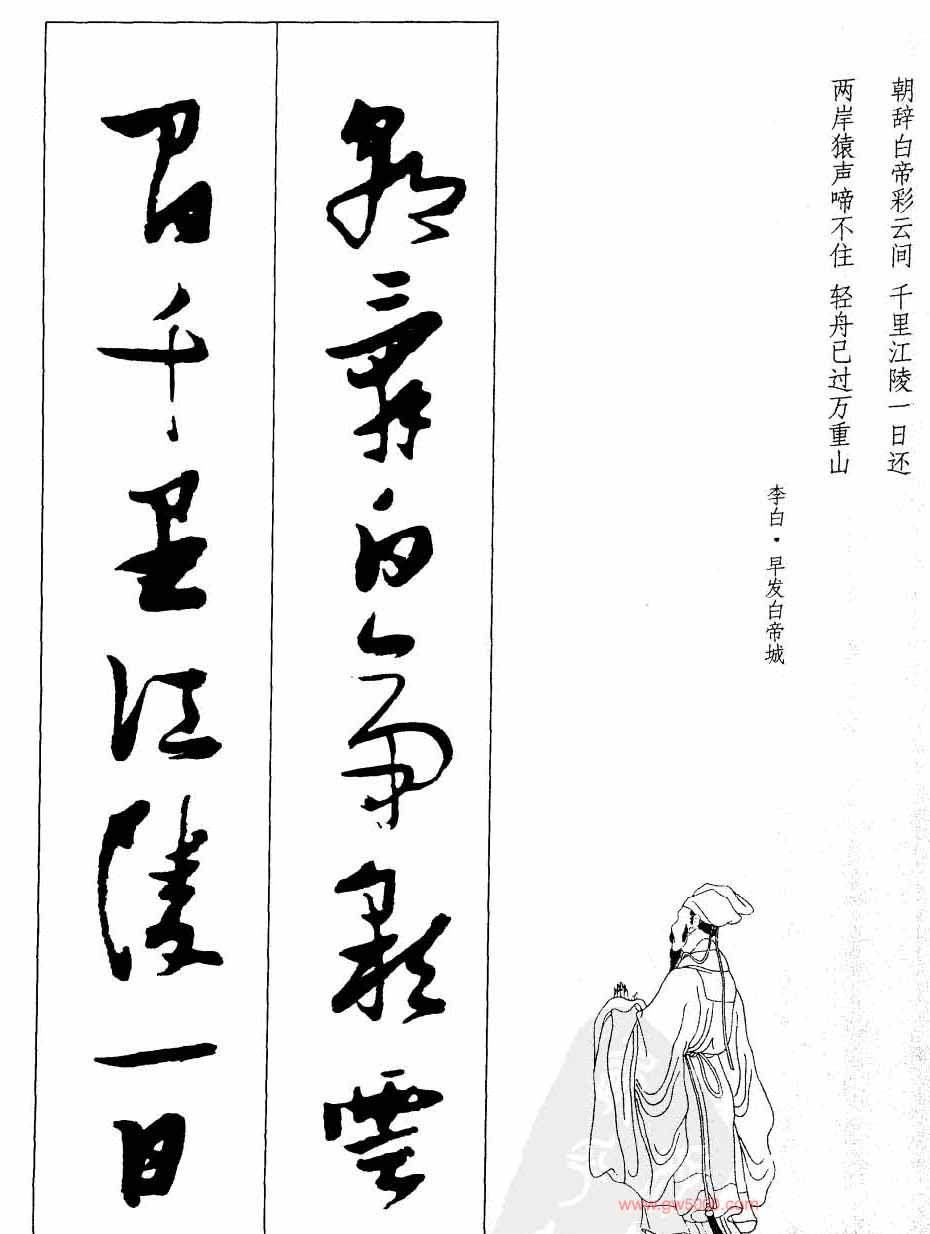 朝辞白帝彩云间 千里江陵一日还
两岸猿声啼不住 轻舟已过万重山
李白·早发白帝城
朝辭白帝彩雲
間千里江陵一日
www.gw5000.com